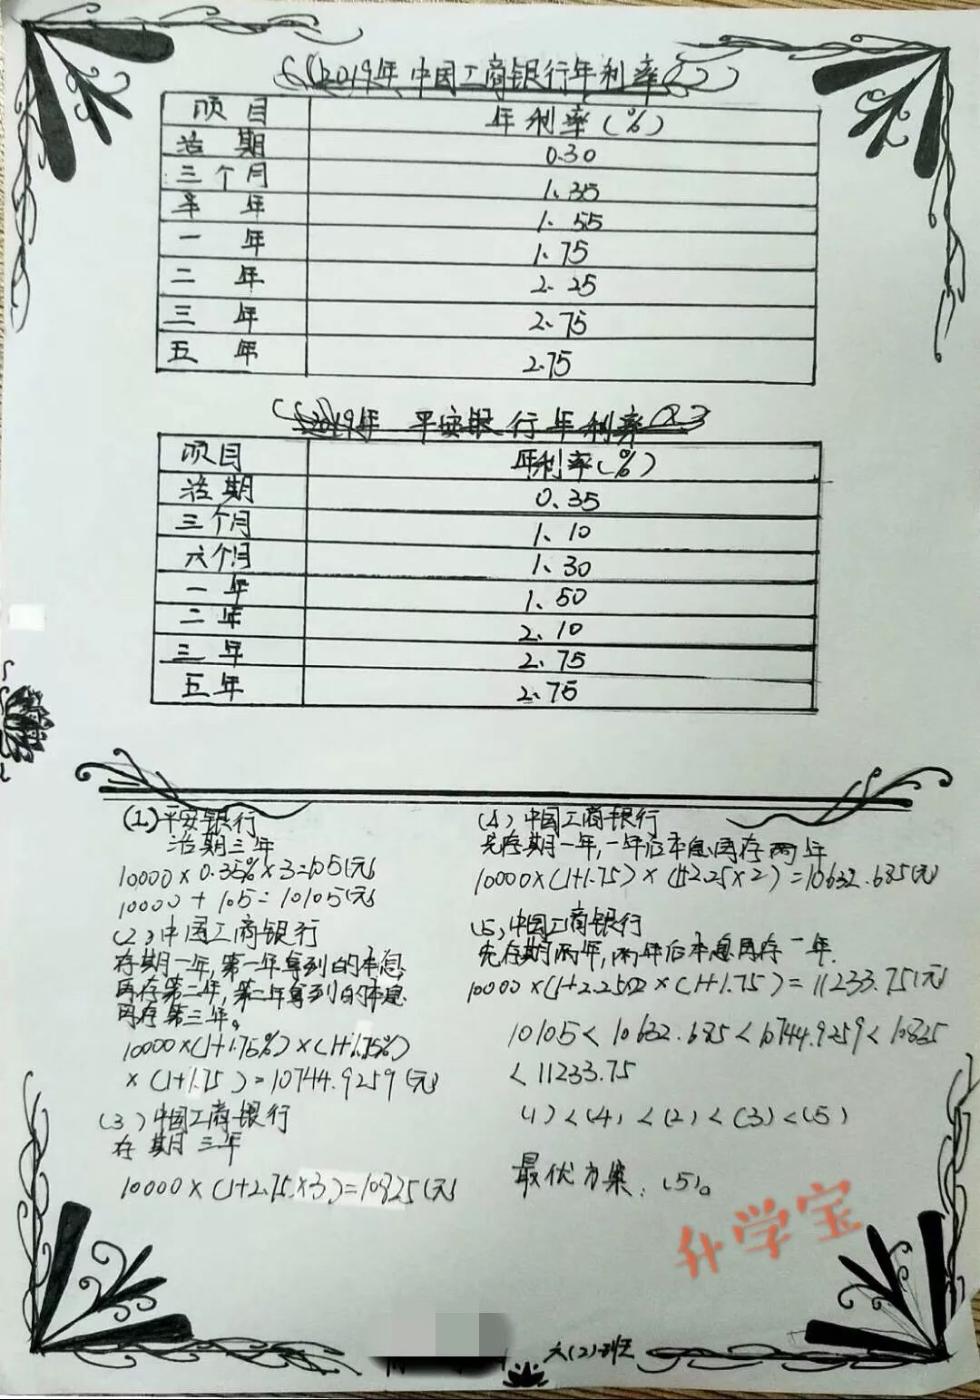 2019年中国工商银行年利率
项目 年利率(%)
活期 0.30
三个月 1.35
半年 1.55
一年 1.75
二年 2.25
三年 2.75
五年 2.75
2019年 平安银行年利率
项目 年利率(%)
活期 0.35
三个月 1.10
六个月 1.30
一年 1.50
二年 2.10
三年 2.75
五年 2.75
(1)平安银行
活期三年
10000×0.35%×3=105(元)
10000+105=10105(元)
(2)中国工商银行
存期一年,第一年拿到的本息
再存第二年,第二年拿到的本息
再存第三年。
10000×(1+1.75%)×(1+1.75%)
×(1+1.75)=10744.9259(元)
(3)中国工商银行
存期三年
10000×(1+2.75×3)=10825(元)
(4)中国工商银行
先存期一年,一年后本息再存两年
10000×(1+1.75)×(1+2.25×2)=10632.685(元)
(5)中国工商银行
先存期两年,两年后本息再存一年.
×(1+1.75)=11233.75(元)
10105<10632.685<10744.9259<10825
<11233.75
(1)<(4)<(2)<(3)<(5)
最优方案:(5)。
升学宝
六(2)班